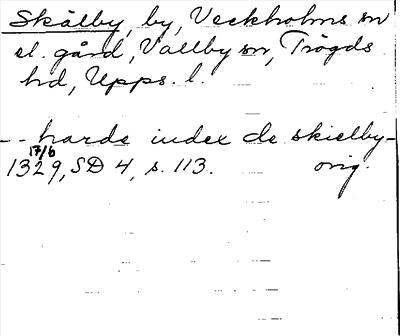 Skälby, by, Veckholms sn
el. gård, Vallby sn, Trögds
hd, Upps. l.
-- harde index de skielby -
17/6
1329, SD 4, s. 113. orig.